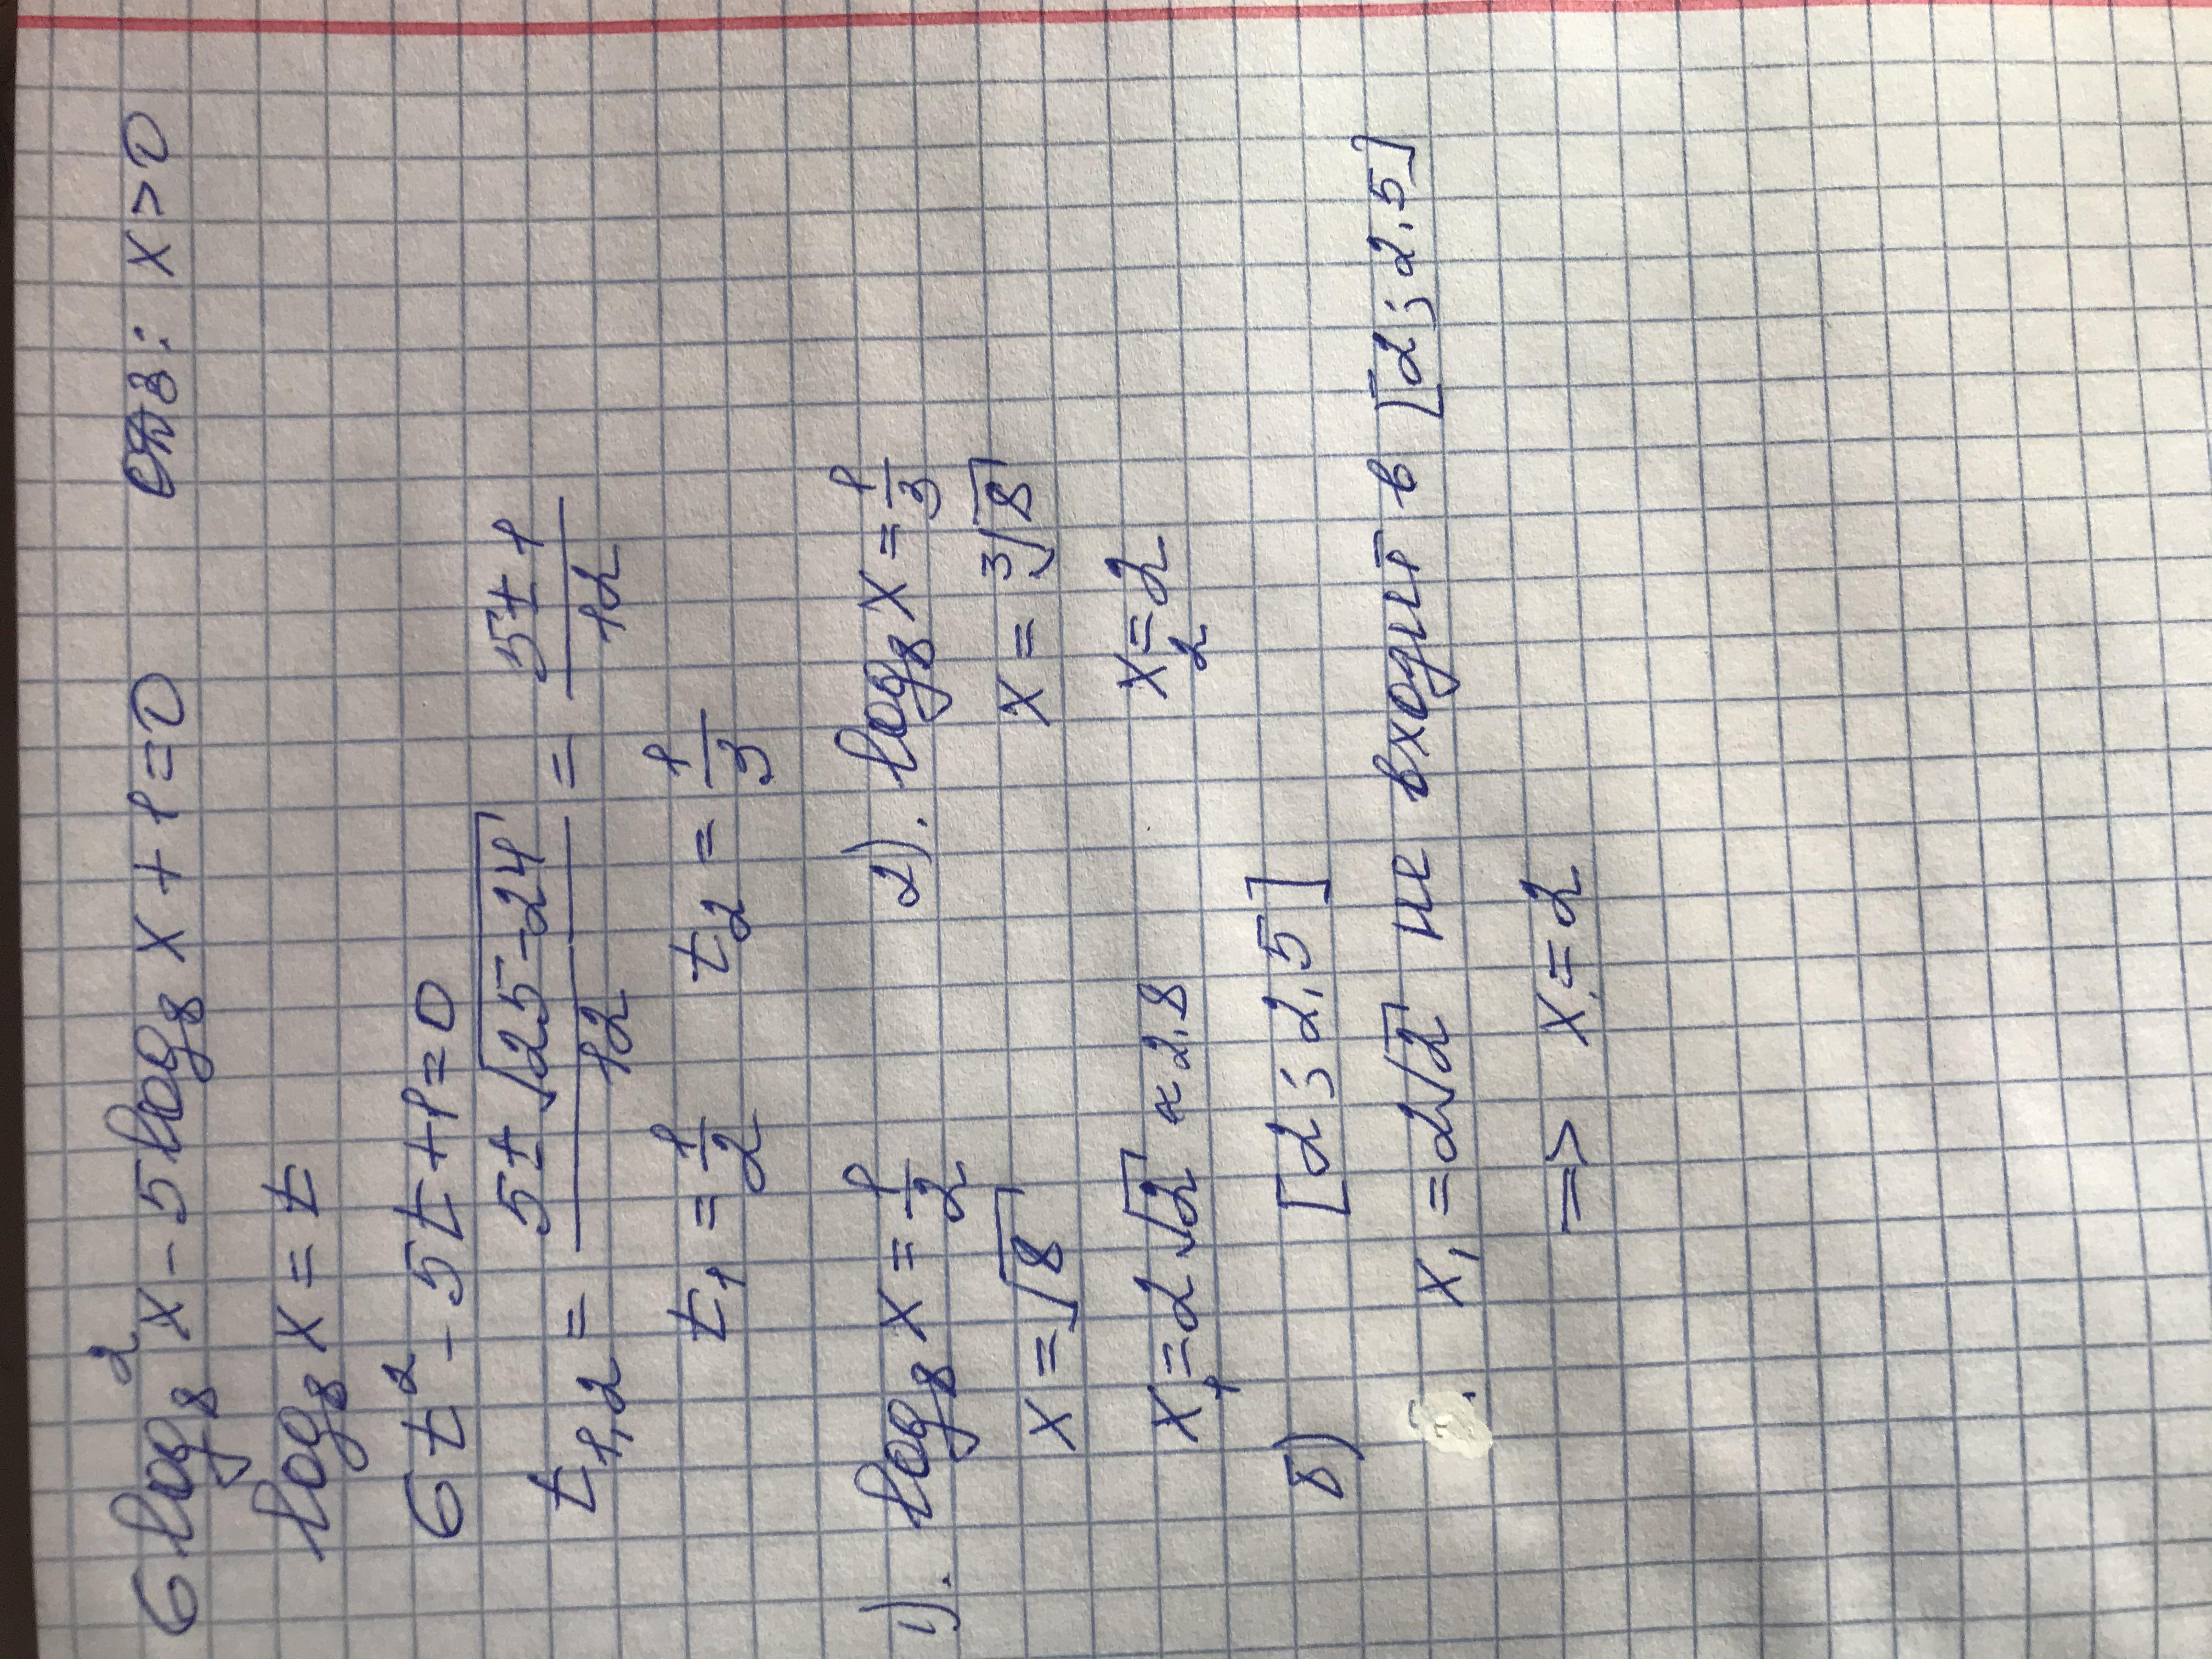 6 log₈² x - 5 log₈ x + 1 = 0 ОДЗ: x > 0
log₈ x = t
6t² - 5t + 1 = 0
t₁,₂ = (5 ± √(25-24))/12 = (5 ± 1)/12
t₁ = 1/2 t₂ = 1/3
1). log₈ x = 1/2 2). log₈ x = 1/3
x = √8 x = ³√8
x₁ = 2√2 ≈ 2,8 x₂ = 2
б) [2; 2,5]
x₁ = 2√2 не входит в [2; 2,5]
=> x = 2